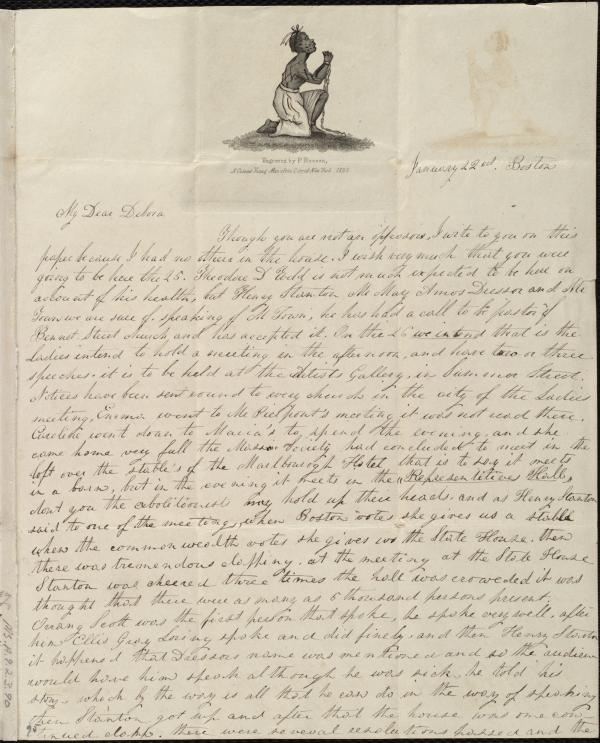 Engraved by P. Reason,
A Colored Young Man of the City of New York 1835
January 22nd. Boston
My Dear Debora
Though you are not an oppressor, I write to you on this
paper because I had no other in the house. I wish very much that you were
going to be here the 25. Theodore D Weld is not much expected to be here on
account of his health, but Henry Stanton Mr May Amos Dresser and Mr
we are sure of. speaking of Mr he has had a call to be pastor of
Bennet Street church and has accepted it. On the 26 we intend that is the
Ladies intend to hold a meeting in the afternoon, and have two or three
speeches. it is to be held at the Artists Gallery, in Summer Street.
Notices have been sent round to every church in the city of the Ladies
meeting, Emma went to Mr Pierpont's meeting it was not read there.
Caroline went down to Maria's to spend the evening and she
came home very full the Mass. Society had concluded to meet in the
loft over the stable's of the Marlborough Hotel that is to say it meets
in a barn, but in the evening it meets in the "Representatives Hall,
dont you the abolitionist may hold up their heads. and as Henry Stanton
said to one of the meetong, when Boston votes she gives us a stable
when the commonwealth votes she gives us the State House. then
there was tremendous clapping. at the meeting at the State House
Stanton was cheered three times the hall was crowded it was
thought that there were as many as 5 thousand persons present.
Orang Scott was the first person that spoke, he spoke very well, after
him Ellis Gray Loring spoke and did finely, and then Henry Stanton
it happened that Dressors name was mentioned and so the audience
would have him speak although he was sick, he told his
story. which by the way is all that he can do in the way of speaking
then Stanton got up and after that the house was one con
tinued clapp. there were several resolutions passed and the